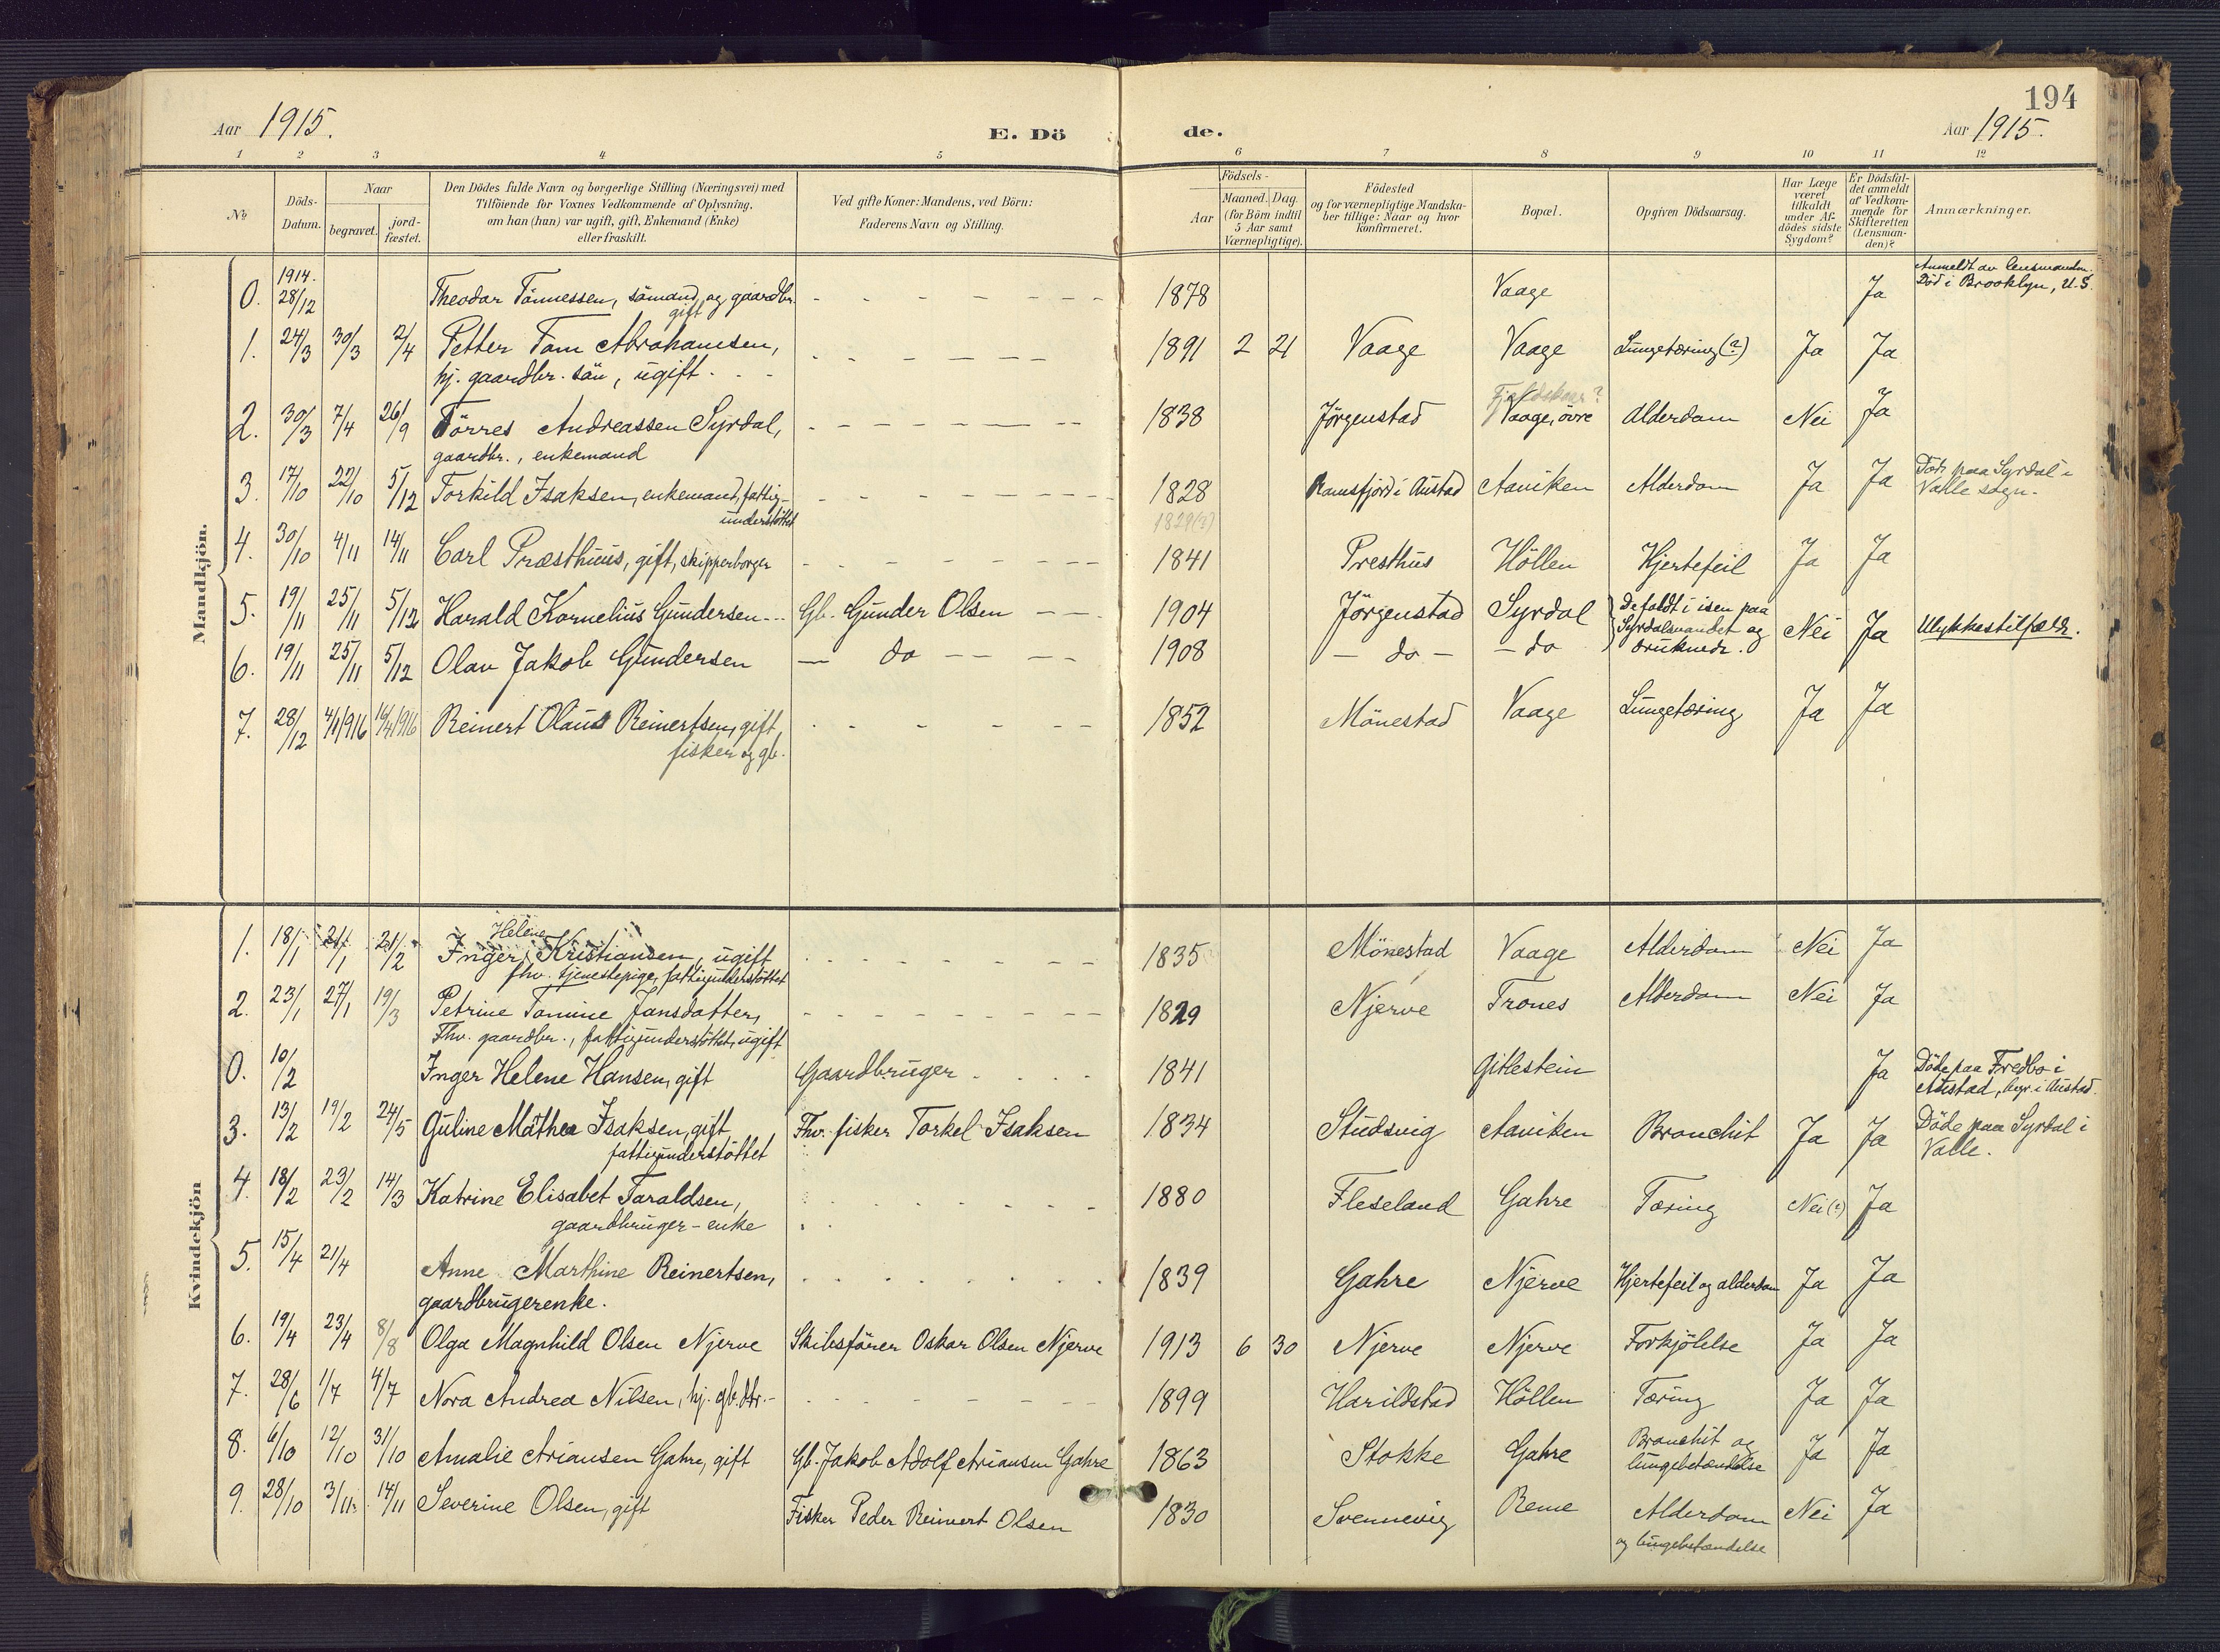 194
Aar 1915.
E. Dö
de.
Aar 1915.
1 2 3 4 5 6 7 8 9 10 11 12
No
Döds-Datum.
Naar
begravet.
jord-fæstet.
Den Dödes fulde Navn og borgerlige Stilling (Næringsvei) med
Tilföiende for Voxnes Vedkommende af Oplysning,
om han (hun) var ugift, gift, Enkemand (Enke)
eller fraskilt.
Ved gifte Koner: Mandens, ved Börn:
Faderens Navn og Stilling.
Födsels-
Aar
Maaned. Dag.
(for Börn indtil
5 Aar samt
Værnepligtige).
Födested
og for værnepligtige Mandska-
ber tillige: Naar og hvor
konfirmeret.
Bopæl.
Opgiven Dödsaarsag.
Har Læge
været
tilkaldt
under Af-
dödes sidste
Sygdom?
Er Dödsfal-
det anmeldt
af Vedkom-
mende for
Skifteretten
(Lensman-
den)?
Anmærkninger.
Mandkjön.
0. 1914. 28/12 Theodor Tönnessen, sömand og gaardbr. 1878 Vaage Ja Anmeldt av lensmanden.
gift Död i Brooklyn, U.S.
1. 24/3 30/3 2/4 Petter Tom Abrahamsen, 1891 2 21 Vaage Vaage Lungetæring (?) Ja Ja
hj. gaardbr. sön, ugift
2. 30/3 7/4 26/9 Törres Andreassen Syrdal, 1838 Jørgenstad Vaage, övre Alderdom Nei Ja
gaardbr., enkemand
3. 17/10 22/10 5/12 Torkild Isaksen, enkemand, fattig- 1828 Ramsfjord i Austad Aaviken Alderdom Ja Ja Död paa Syrdal i
understöttet 1829(?) Valle sogn.
4. 30/10 4/11 14/11 Carl Præsthuus, gift, skipperborger 1841 Presthus Höllen Hjertefeil Ja Ja
5. 19/11 25/11 5/12 Harald Kornelius Gundersen Gb. Gunder Olsen 1904 Jörgenstad Syrdal De faldt i isen paa
Syrdalsvandet og Nei Ja Ulykkestilfælde.
6. 19/11 25/11 5/12 Olav Jakob Gundersen — do — 1908 — do — — do druknede.
7. 28/12 4/1 1916 16/4 1916 Reinert Olaus Reinertsen, gift, 1852 Mönestad Vaage Lungetæring Ja Ja
fisker og gb.
Kvindekjön
1. 18/1 21/1 21/2 Inger Helene Kristiansen, ugift 1835 Mönestad Vaage Alderdom Nei Ja
fhv. tjenestepige, fattigunderstöttet
2. 23/1 27/1 19/3 Petrine Tomine Jansdatter, 1829 Njerve Trones Alderdom Nei Ja
Fhv. gaardbr., fattigunderstöttet, ugift
0. 10/2 Inger Helene Hansen, gift Gaardbruger 1841 Gitlestein Ja Döde paa Fredbo i
Austad, begr. i Austad.
3. 13/2 19/2 24/5 Guline Mathea Isaksen, gift Fhv. fisker Torkel Isaksen 1834 Studsvig Aaviken Bronchit Ja Ja Döde paa Syrdal i
fattigunderstöttet Valle.
4. 18/2 23/2 14/3 Katrine Elisabet Taraldsen, 1880 Fleseland Gahre Tæring Nei (?) Ja
gaardbruger-enke
5. 15/4 21/4 Anne Marthine Reinertsen, 1839 Gahre Njerve Hjertefeil og alderdom Ja Ja
gaardbrugerenke.
6. 19/4 23/4 8/8 Olga Magnhild Olsen Njerve Skibsförer Oskar Olsen Njerve 1913 6 30 Njerve Njerve Forkjölelse Ja Ja
7. 28/6 1/7 4/7 Nora Andrea Nilsen, hj. gb. dtr. 1899 Harildstad Höllen Tæring Ja Ja
8. 6/10 12/10 31/10 Amalie Ariansen Gahre, gift Gb. Jakob Adolf Ariansen Gahre 1863 Stokke Gahre Bronchit og Ja Ja
lungebetændelse
9. 28/10 3/11 14/11 Severine Olsen, gift Fisker Peder Reinert Olsen 1830 Svennevig Reme Alderdom Nei Ja
og lungebetændelse